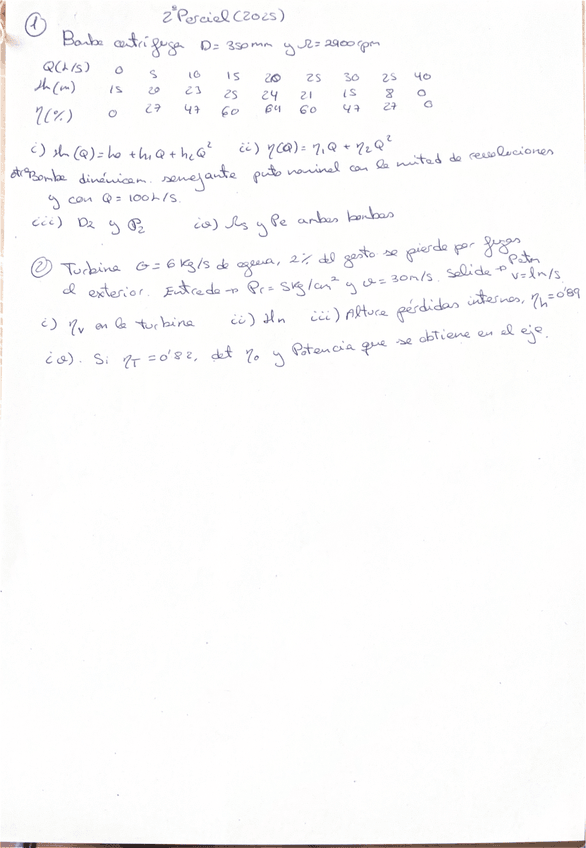 2º Parcial (2025)
① Bomba centrífuga D = 350 mm y Ω = 2900 rpm
Q(L/s) 0 5 10 15 20 25 30 25 40
H(m) 15 20 23 25 24 21 15 8 0
η(%) 0 27 47 60 64 60 47 27 0
i) H(Q) = h0 + h1Q + h2Q² ii) η(Q) = η1Q + η2Q²
otra Bomba dinámicam. semejante pto nominal con la mitad de revoluciones
y con Q = 100 L/s.
iii) D2 y P2 iv) Ωs y Pe ambas bombas
② Turbina G = 6 kg/s de agua, 2% del gasto se pierde por fugas
al exterior. Entrada → Pr = 5 kg/cm² y v = 30 m/s. Salida → Patm
v = 1 m/s
i) ηv en la turbina ii) Hn iii) Altura pérdidas internas, ηh = 0'89
iv). Si ηT = 0'82, det ηo y Potencia que se obtiene en el eje.